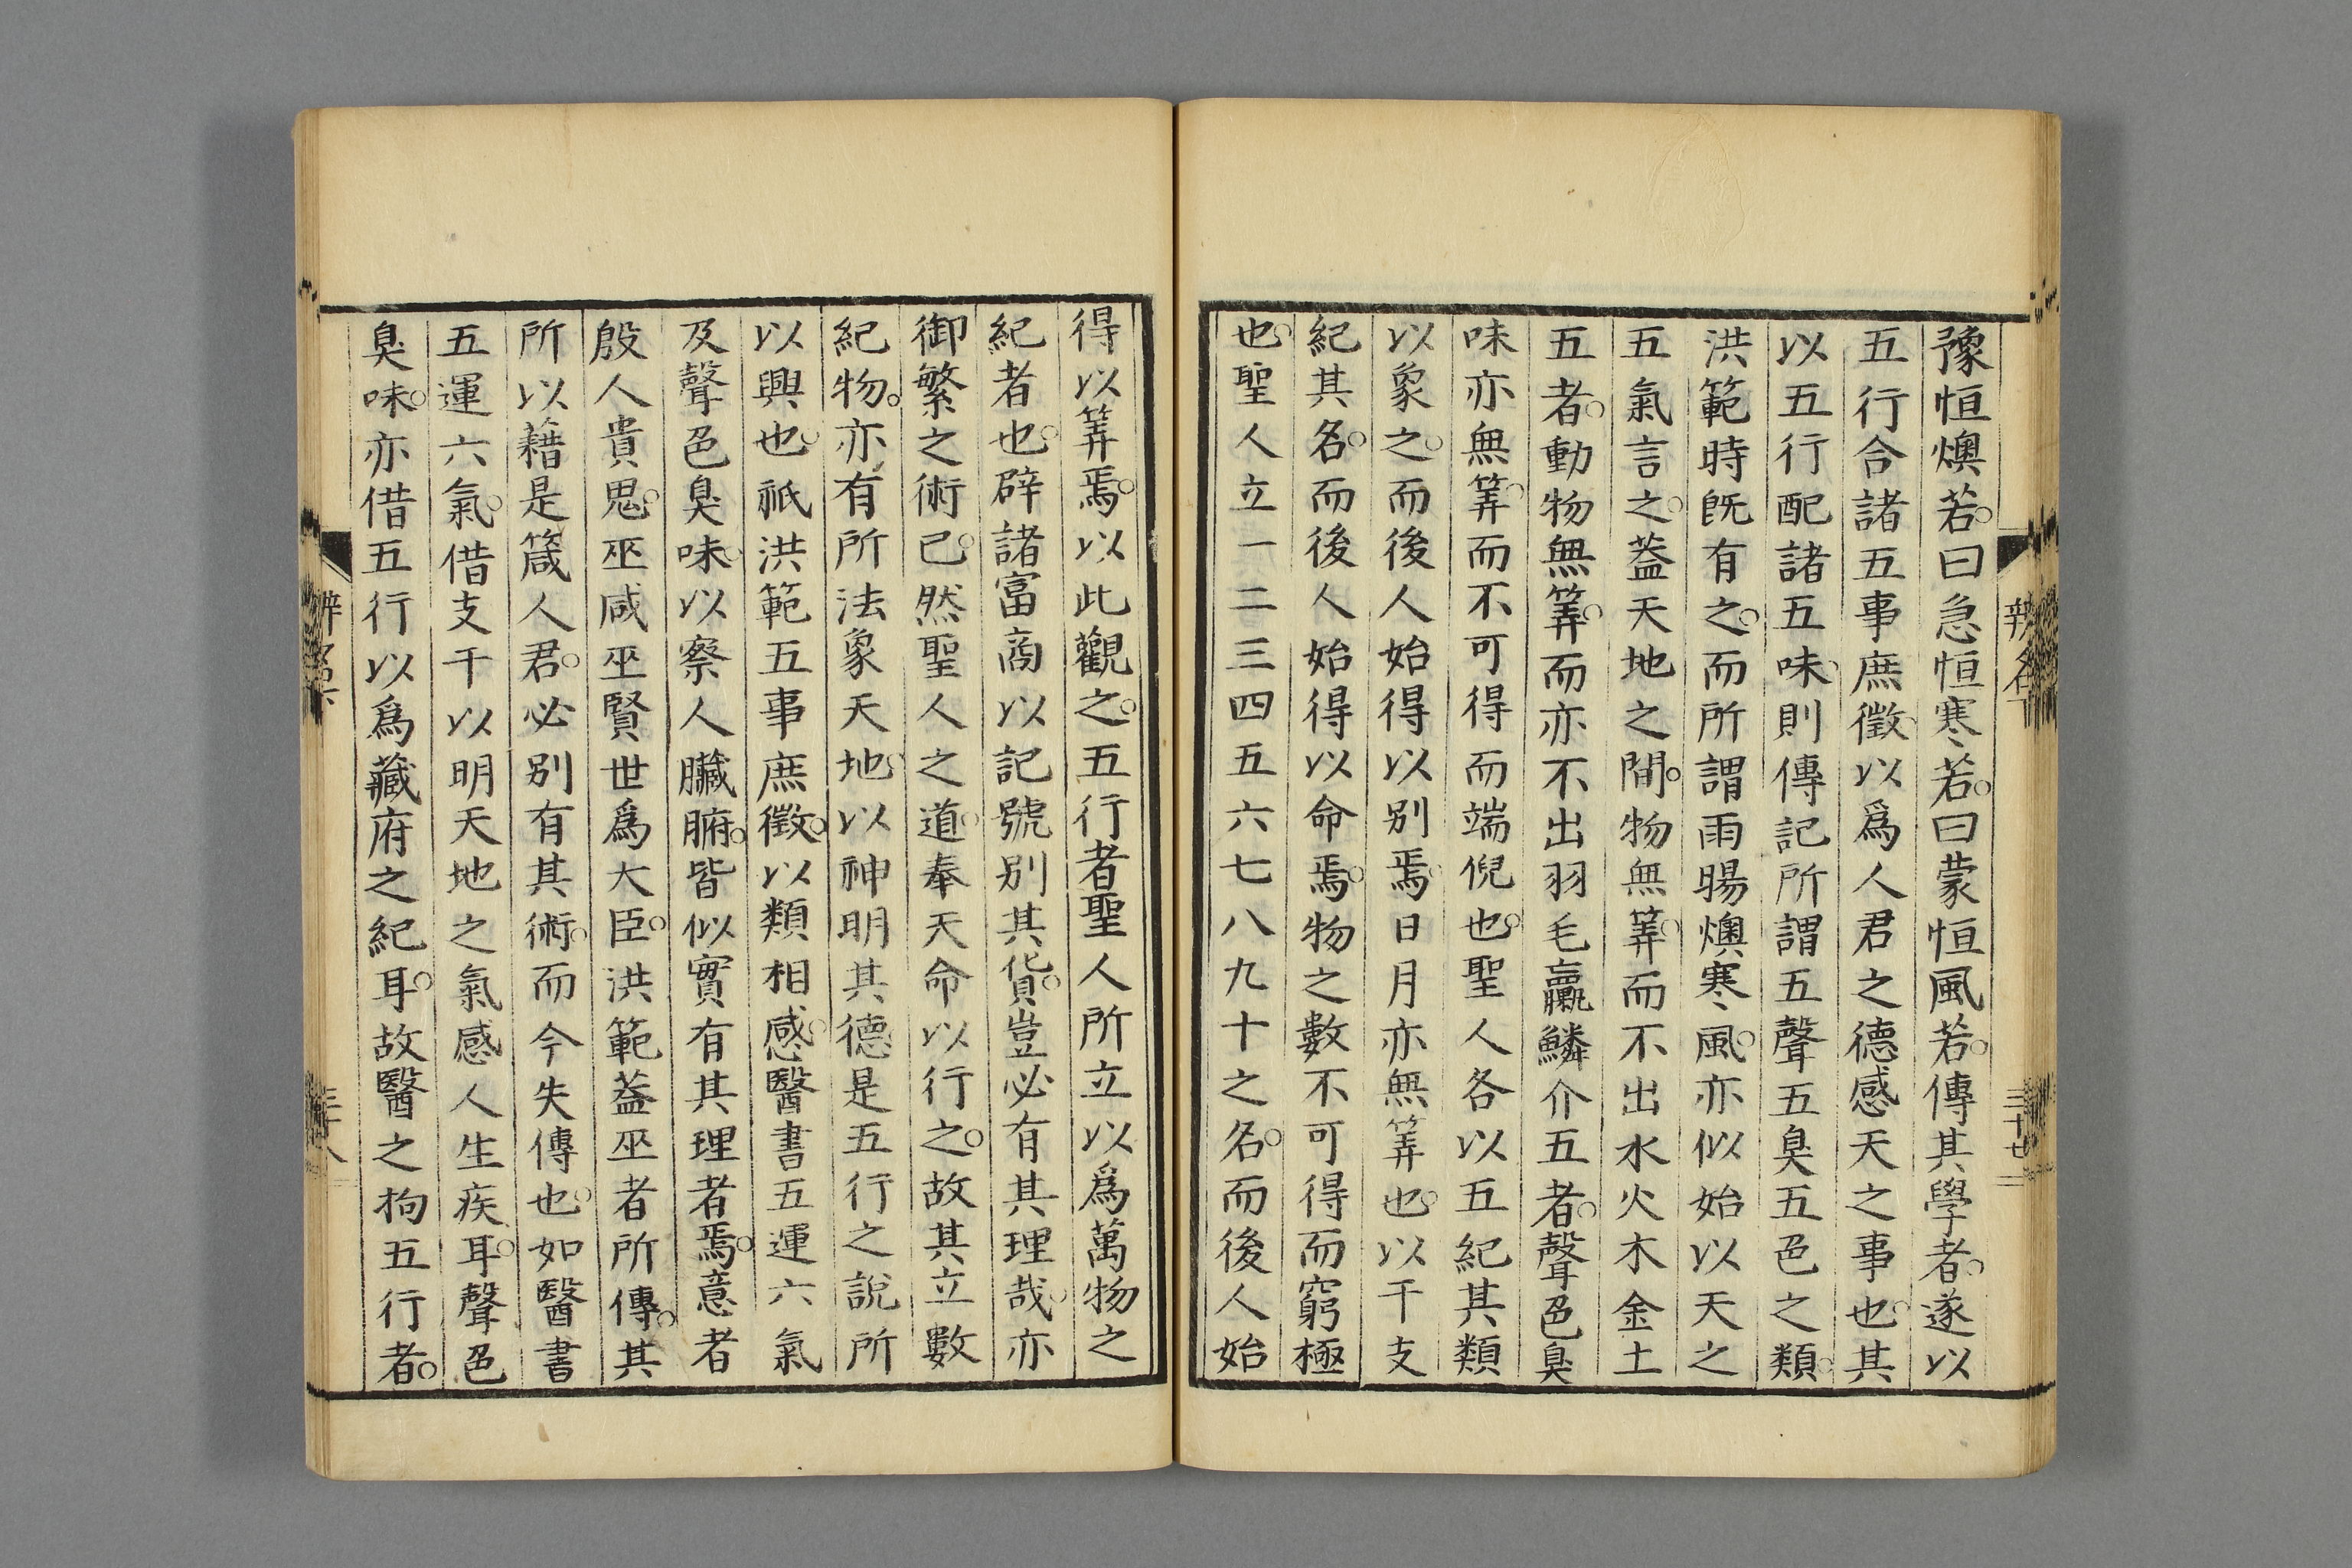 豫恒燠若。曰急恒寒若。曰蒙恒風若。傳其學者。遂以
五行合諸五事庶徵。以爲人君之德感天之事也。其
以五行配諸五味。則傳記所謂五聲五臭五色之類。
洪範時旣有之。而所謂雨暘燠寒風。亦似始以天之
五氣言之。葢天地之間。物無筭。而不出水火木金土
五者。動物無筭。而亦不出羽毛臝鱗介五者。聲色臭
味亦無筭。而不可得而端倪也。聖人各以五紀其類
以象之。而後人始得以別焉。日月亦無筭也。以干支
紀其名。而後人始得以命焉。物之數不可得而窮極
也。聖人立一二三四五六七八九十之名。而後人始
辨名下
三十七
得以筭焉。以此觀之。五行者聖人所立以爲萬物之
紀者也。辟諸富商以記號別其貨。豈必有其理哉。亦
御繁之術已。然聖人之道。奉天命以行之。故其立數
紀物。亦有所法象天地。以神明其德。是五行之說所
以興也。祇洪範五事庶徵。以類相感。醫書五運六氣
及聲色臭味。以察人臟腑。皆似實有其理者焉。意者
殷人貴鬼。巫咸巫賢世爲大臣。洪範葢巫者所傳。其
所以藉是箴人君。必別有其術。而今失傳也。如醫書
五運六氣。借支干以明天地之氣感人生疾耳。聲色
臭味。亦借五行以爲藏府之紀耳。故醫之拘五行者。
辨名下
三十八